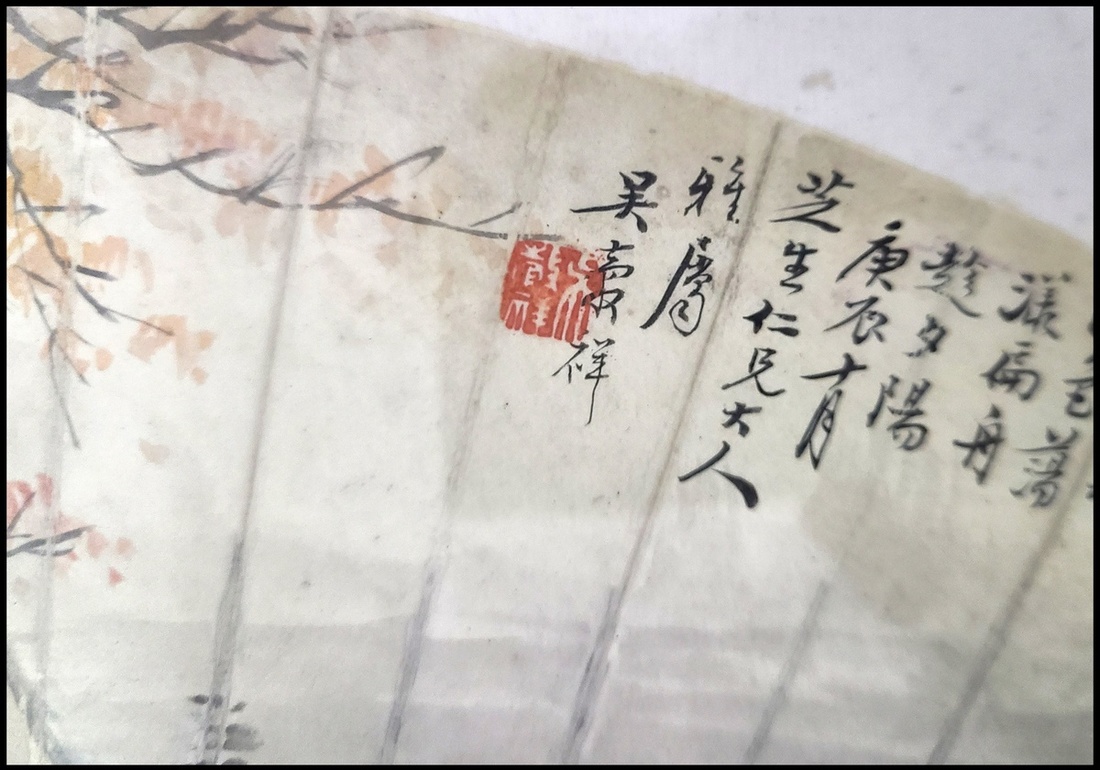 色蕩
漾扁舟
趁夕陽
庚辰十月
芝生仁兄大人
雅屬
吳穀祥